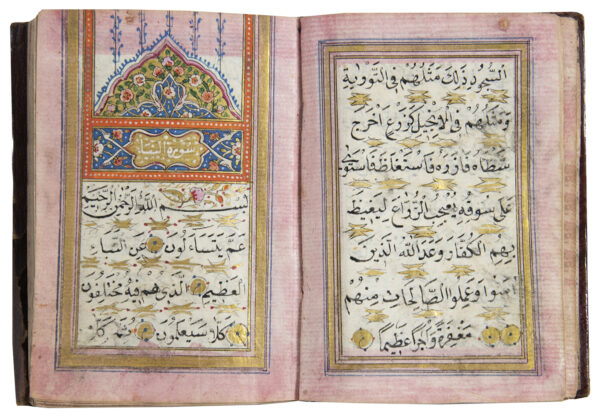 السُّجُودِ ذٰلِكَ مَثَلُهُمْ فِي التَّوْرٰيةِ
وَمَثَلُهُمْ فِي الْاِنْجِيلِ كَزَرْعٍ اَخْرَجَ
شَطْأَهُ فَاٰزَرَهُ فَاسْتَغْلَظَ فَاسْتَوٰى
عَلٰى سُوقِهِ يُعْجِبُ الزُّرَّاعَ لِيَغِيظَ
بِهِمُ الْكُفَّارَ وَعَدَ اللّٰهُ الَّذِينَ
اٰمَنُوا وَعَمِلُوا الصَّالِحَاتِ مِنْهُمْ
مَغْفِرَةً وَاَجْرًا عَظِيمًا
سورة النبأ
بِسْمِ اللّٰهِ الرَّحْمٰنِ الرَّحِيمِ
عَمَّ يَتَسَاءَلُونَ عَنِ النَّبَأِ
الْعَظِيمِ الَّذِي هُمْ فِيهِ مُخْتَلِفُونَ
كَلَّا سَيَعْلَمُونَ ثُمَّ كَلَّا